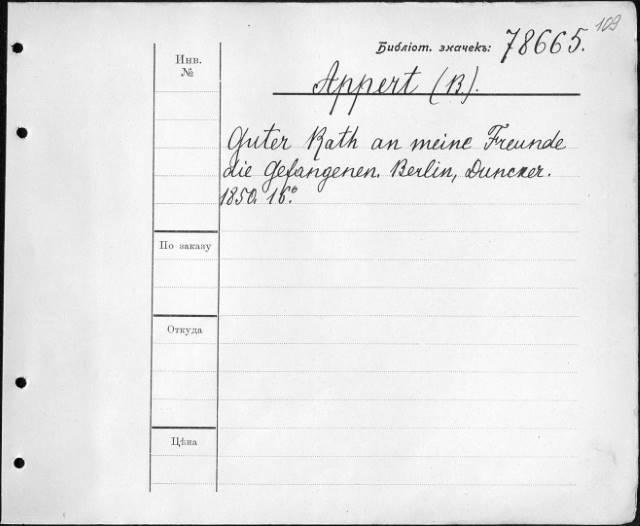 103
Библіот. значекъ: 78665.
Инв.
№
Appert (B.).
Guter Rath an meine Freunde
die Gefangenen. Berlin, Duncker.
1850. 16°.
По заказу
Откуда
Цѣна